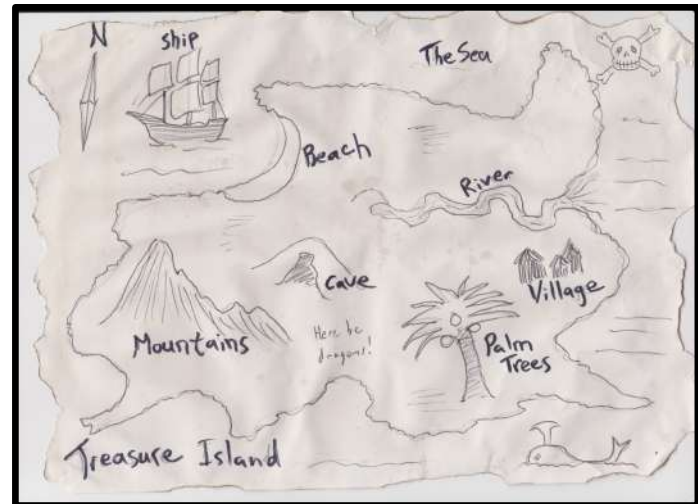 N
ship
The Sea
Beach
River
Cave
Village
Mountains
Here be
dragons!
Palm
Trees
Treasure Island